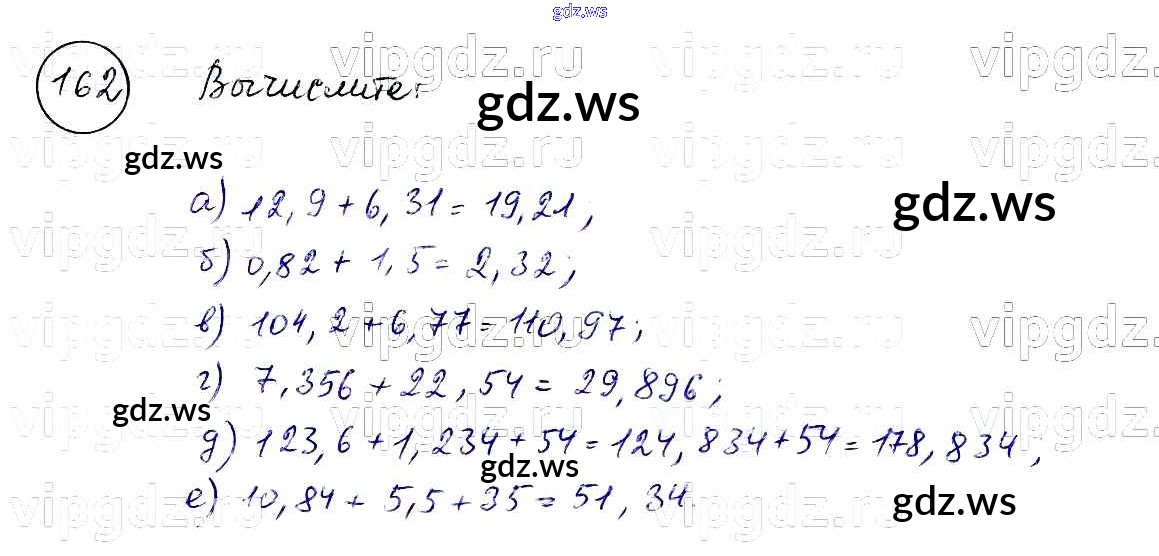 gdz.ws
vipgdz.ru vipgdz.ru vipgdz.ru vipgdz.ru
162 Вычислите:
gdz.ws
gdz.ws
vipgdz.ru vipgdz.ru vipgdz.ru vipgdz.ru
а) 12,9 + 6,31 = 19,21;
gdz.ws
vipgdz.ru vipgdz.ru vipgdz.ru vipgdz.ru
б) 0,82 + 1,5 = 2,32;
в) 104,2 + 6,77 = 110,97;
vipgdz.ru vipgdz.ru vipgdz.ru vipgdz.ru
г) 7,356 + 22,54 = 29,896;
gdz.ws
vipgdz.ru vipgdz.ru vipgdz.ru vipgdz.ru
д) 123,6 + 1,234 + 54 = 124,834 + 54 = 178,834;
gdz.ws
е) 10,84 + 5,5 + 35 = 51,34.
gdz.ws
vipgdz.ru vipgdz.ru vipgdz.ru vipgdz.ru